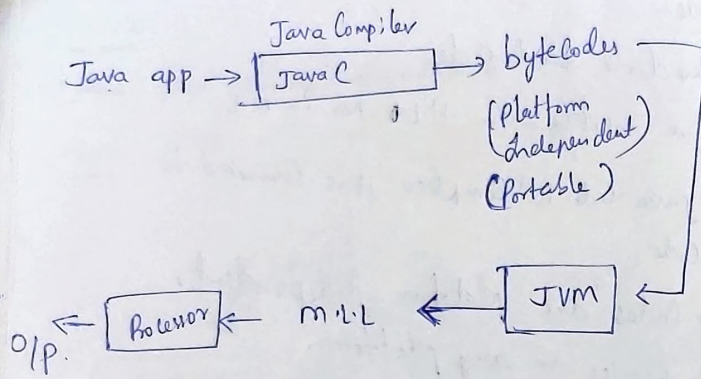 Java Compiler
Java app → JavaC → bytecodes
(Platform
Independent)
(Portable)
JVM
M.L.L
Processor
O/P.